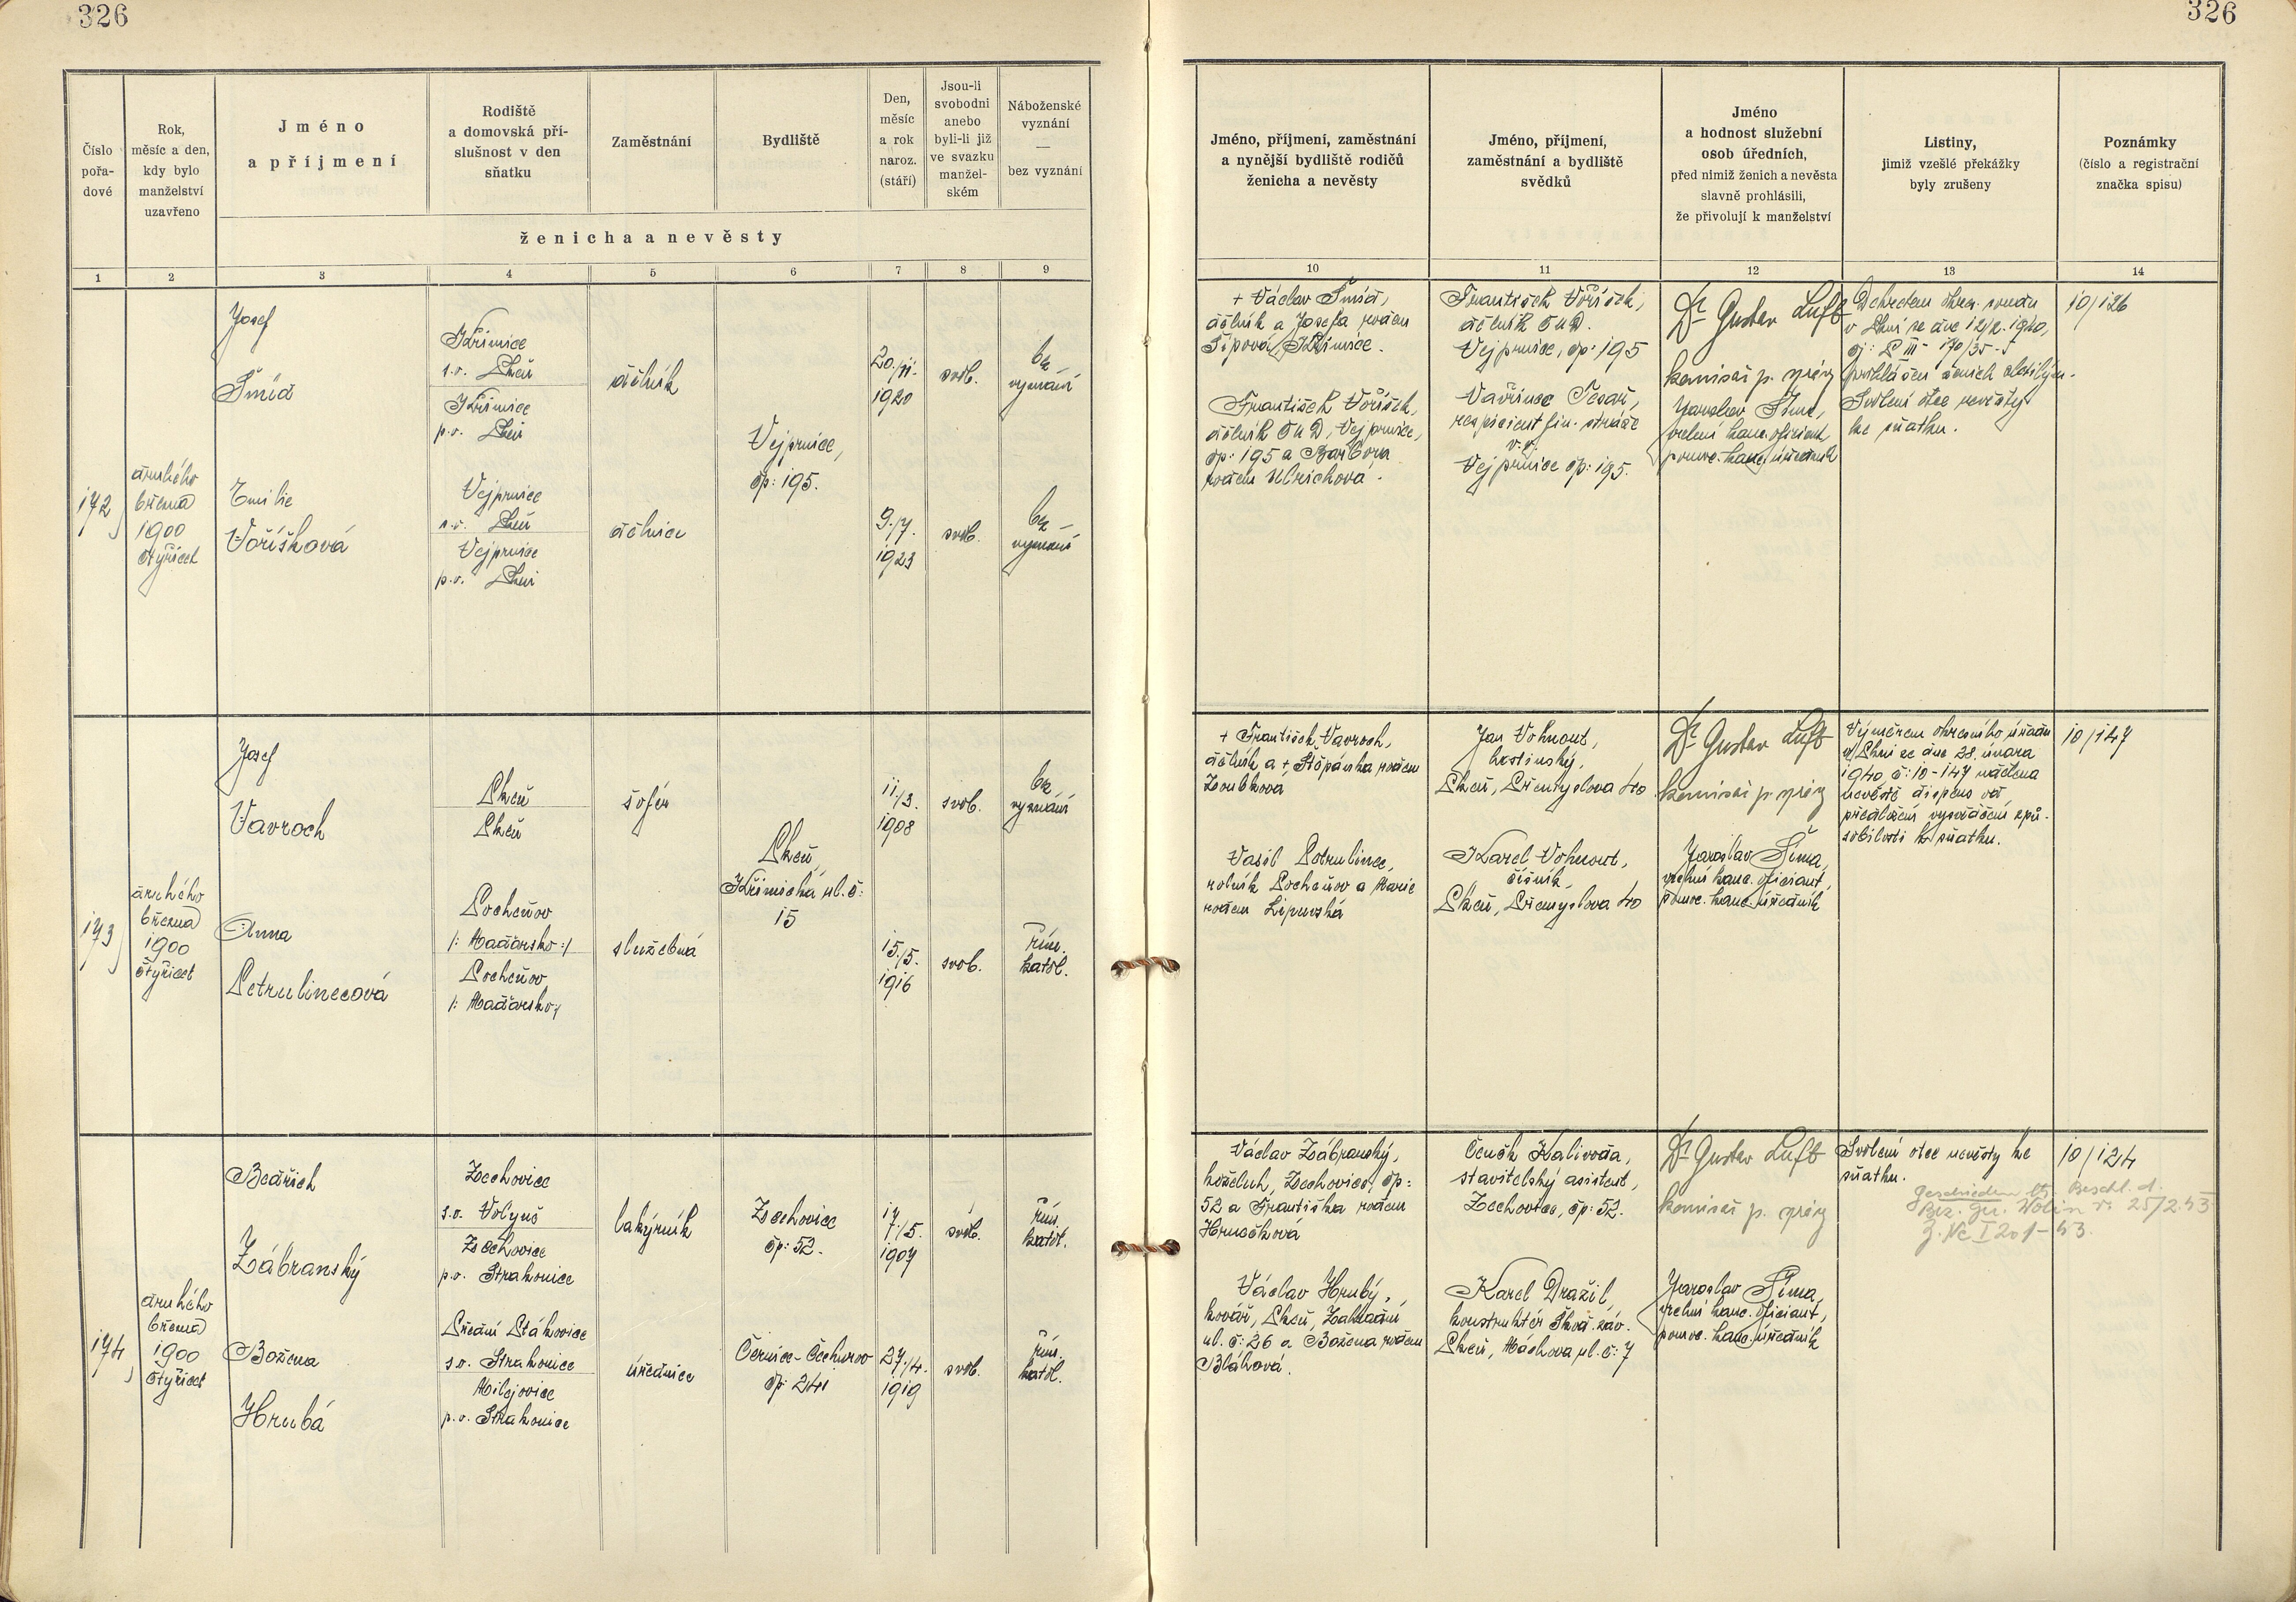 326
326
Číslo
pořa-
dové
Rok,
měsíc a den,
kdy bylo
manželství
uzavřeno
Jméno
a příjmení
Rodiště
a domovská pří-
slušnost v den
sňatku
Zaměstnání
Bydliště
Den,
měsíc
a rok
naroz.
(stáří)
Jsou-li
svobodni
anebo
byli-li již
ve svazku
manžel-
ském
Náboženské
vyznání
—
bez vyznání
ženicha a nevěsty
Jméno, příjmení, zaměstnání
a nynější bydliště rodičů
ženicha a nevěsty
Jméno, příjmení,
zaměstnání a bydliště
svědků
Jméno
a hodnost služební
osob úředních,
před nimiž ženich a nevěsta
slavně prohlásili,
že přivolují k manželství
Listiny,
jimiž vzešlé překážky
byly zrušeny
Poznámky
(číslo a registrační
značka spisu)
1 2 3 4 5 6 7 8 9
10 11 12 13 14
172
druhého
března
1900
čtyřicet
Josef
Šmíd
Křimice
s.o. Plzeň
Křimice
p.o. Plzeň
dělník
Vejprnice,
čp: 195.
20./11.
1920
svob.
bez
vyznání
Emilie
Voříšková
Vejprnice
s.o. Plzeň
Vejprnice
p.o. Plzeň
dělnice
9./7.
1923
svob.
bez
vyznání
+ Václav Šmíd,
dělník a Josefa rodem
Šípová, Křimice.
František Voříšek,
dělník ČMD, Vejprnice,
čp: 195 a Barbora
rodem Ulrichová.
František Voříšek,
dělník ČMD.
Vejprnice, čp: 195
Vavřinec Tesař,
respicient fin. stráže
v.v.
Vejprnice čp: 195.
Dr Gustav Luft
komisař p. správy
Jaroslav Šíma,
vrchní kanc. oficiant
pomoc. kanc. úředník
Dekretem okres. soudu
v Plzni ze dne 12/2. 1940,
čj: P III 170/35-5
prohlášen ženich zletilým.
Svolení otce nevěsty
ke sňatku.
10/126
173
druhého
března
1900
čtyřicet
Josef
Vavroch
Plzeň
Plzeň
šofér
Plzeň,
Křimická ul. č:
15
11./3.
1908
svob.
bez
vyznání
Anna
Petrulinecová
/: Maďarsko :/
/: Maďarsko :/
služebná
15./5.
1916
svob.
řím.
katol.
+ František Vavroch,
dělník a + Štěpánka rodem
Zoubková
Vasil Petrulinec,
rolník a Marie
rodem
Jan Vohnout,
hostinský,
Plzeň, Přemyslova 40
Karel Vohnout,
číšník,
Plzeň, Přemyslova 40
Dr Gustav Luft
komisař p. správy
Jaroslav Šíma,
vrchní kanc. oficiant,
pomoc. kanc. úředník
Výměrem okresního úřadu
v Plzni ze dne 28. února
1940, č: 10-147 udělena
nevěstě dispens od
předložení vysvědčení způ-
sobilosti k sňatku.
10/147
174
druhého
března
1900
čtyřicet
Bedřich
Zábranský
Zechovice
s.o. Volyně
Zechovice
p.o. Strakonice
lakýrník
Zechovice
čp: 52.
17/5.
1907
svob.
řím.
katol.
Božena
Hrubá
Přední Ptákovice
s.o. Strakonice
Milejovice
p.o. Strakonice
úřednice
Černice-Čechurov
čp: 241
27./4.
1919
svob.
řím.
katol.
Václav Zábranský,
koželuh, Zechovice, čp:
52 a Františka rodem
Hrušková
Václav Hrubý,
kovář, Plzeň, Zahradní
ul. č: 26 a Božena rodem
Bláhová.
Čeněk Kalivoda,
stavitelský asistent,
Zechovice, čp: 52.
Karel Dražil,
konstruktér Škod. záv.
Plzeň, Máchova ul. č: 7
Dr Gustav Luft
komisař p. správy
Jaroslav Šíma,
vrchní kanc. oficiant,
pomoc. kanc. úředník
Svolení otce nevěsty ke
sňatku.
geschieden lt. Beschl. d.
Bez. Ger. Wolin v. 25/2.43
Z. Nc I 201-43.
10/124